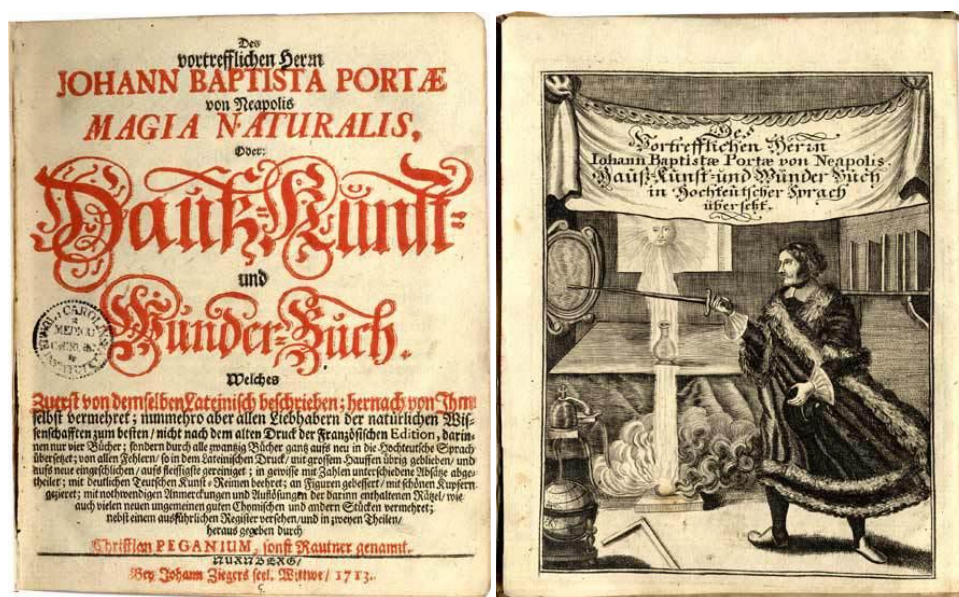 Des
vortrefflichen Herrn
JOHANN BAPTISTA PORTÆ
von Neapolis
MAGIA NATURALIS,
Oder:
Hauß-Kunst-
und
Wunder-Buch.
Welches
Zuerst von demselben Lateinisch beschrieben; hernach von Ihm
selbst vermehret; nunmehro aber allen Liebhabern der natürlichen Wis-
senschafften zum besten / nicht nach dem alten Druck der Französischen Edition, darin-
nen nur vier Bücher; sondern durch alle zwantzig Bücher gantz aufs neu in die Hochteutsche Sprach
übersetzt; von allen Fehlern / so in dem Lateinischen Druck / mit grossem Hauffen übrig geblieben / und
aufs neue eingeschlichen / aufs fleissigste gereiniget; in gewisse mit Zahlen unterschiedene Absätze abge-
theilet; mit deutlichen Teutschen Kunst-Reimen beehret; an Figuren gebessert / mit schönen Kupfern
gezieret; mit nothwendigen Anmerckungen und Auflösungen der darinn enthaltenen Rätzel / wie
auch vielen neuen ungemeinen guten Chymischen und andern Stücken vermehret;
nebst einem ausführlichen Register versehen / und in zweyen Theilen /
heraus gegeben durch
Christian PEGANIUM, sonst Rautner genannt.
NURNBERG /
Bey Johann Ziegers seel. Wittwe / 1713.
CAROLIN
MEDICO
Des
Vortrefflichen Herrn
Iohann Baptistæ Portæ von Neapolis.
Hauß-Kunst-und Wunder Buch
in Hochteutscher Sprach
übersetzt.